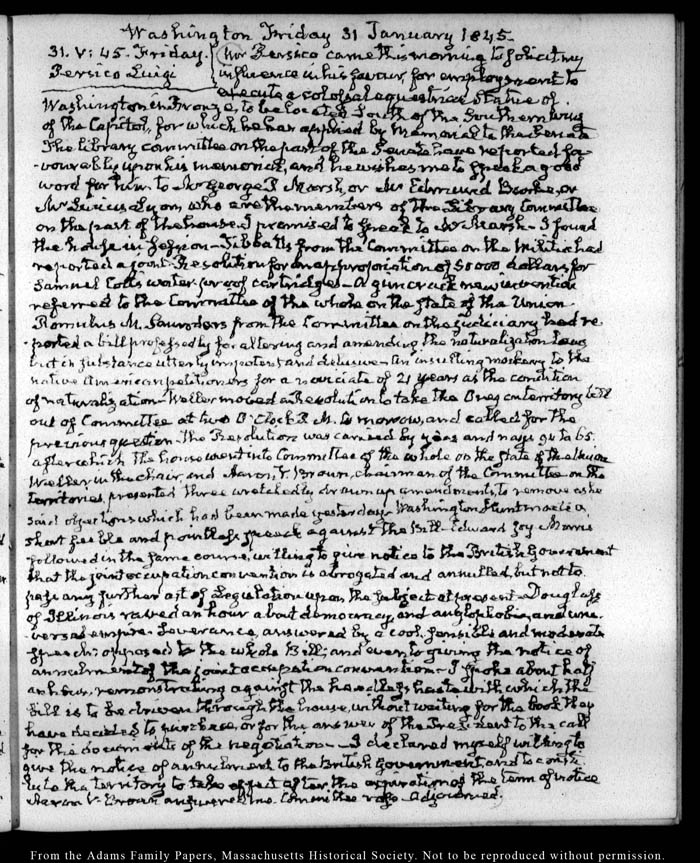 Washington Friday 31 January 1845.
31. V: 45. Friday.
Persico Luigi
Mr Persico came this morning to solicit my
influence in his favour, for employment to
execute a colossal equestrian statue of
Washington in Bronze, to be located South of the Southern wing
of the Capitol, for which he has applied by memorial to the Senate
The library committee on the part of the Senate have reported fa-
vourably upon his memorial, and he wishes me to speak a good
word for him to Mr George P. Marsh, or Mr Edmund Burke, or
Mr Lucius Lyon, who are the members of the Library Committee
on the part of the house. I promised to speak to Mr Marsh - I found
the house in Session - Tibbatts from the Committee on the Militia had
reported a joint Resolution for an appropriation of 50000 dollars for
Samuel Colts water-proof cartridges - A gimcrack new invention
referred to the Committee of the whole on the state of the Union
Romulus M. Saunders from the Committee on the Judiciary had re-
ported a bill professedly for altering and amending the naturalization Laws
but in substance utterly impotent and delusive - An insulting mockery to the
native American petitioners for a noviciate of 21 years as the condition
of naturalization - Weller moved a Resolution to take the Oregon territory bill
out of Committee at two O'Clock P.M. to morrow, and called for the
previous question. The Resolution was carried by yeas and nays 94 to 65.
after which the house went into Committee of the whole on the state of the Union
Weller in the chair, and Aaron V. Brown, chairman of the Committee on the
Territories, presented three wretchedly drawn up amendments, to remove as he
said objections which had been made yesterday - Washington Hunt made a
short feeble and pointless speech against the Bill - Edward Joy Morris
followed in the same course, willing to give notice to the British Government
that the joint occupation convention is abrogated and annulled, but not to
pass any further act of Legislation upon the subject at present - Douglass
of Illinois raved an hour about democracy and anglophobia, and uni-
versal empire. Severance, answered by a cool, sensible and moderate
speech; opposed to the whole Bill; and even to giving the notice of
annulment of the joint occupation convention - I spoke about half
an hour, remonstrating against the headlong haste with which the
Bill is to be driven through the house, without waiting for the book they
have decided to purchase, or for the answer of the President to the call
for the documents of the negotiation - I declared myself willing to
give the notice of annulment to the British government and to consti-
tute the territory to take effect after the expiration of the term of notice
Aaron V. Brown answered me. Committee rose. Adjourned.
From the Adams Family Papers, Massachusetts Historical Society. Not to be reproduced without permission.